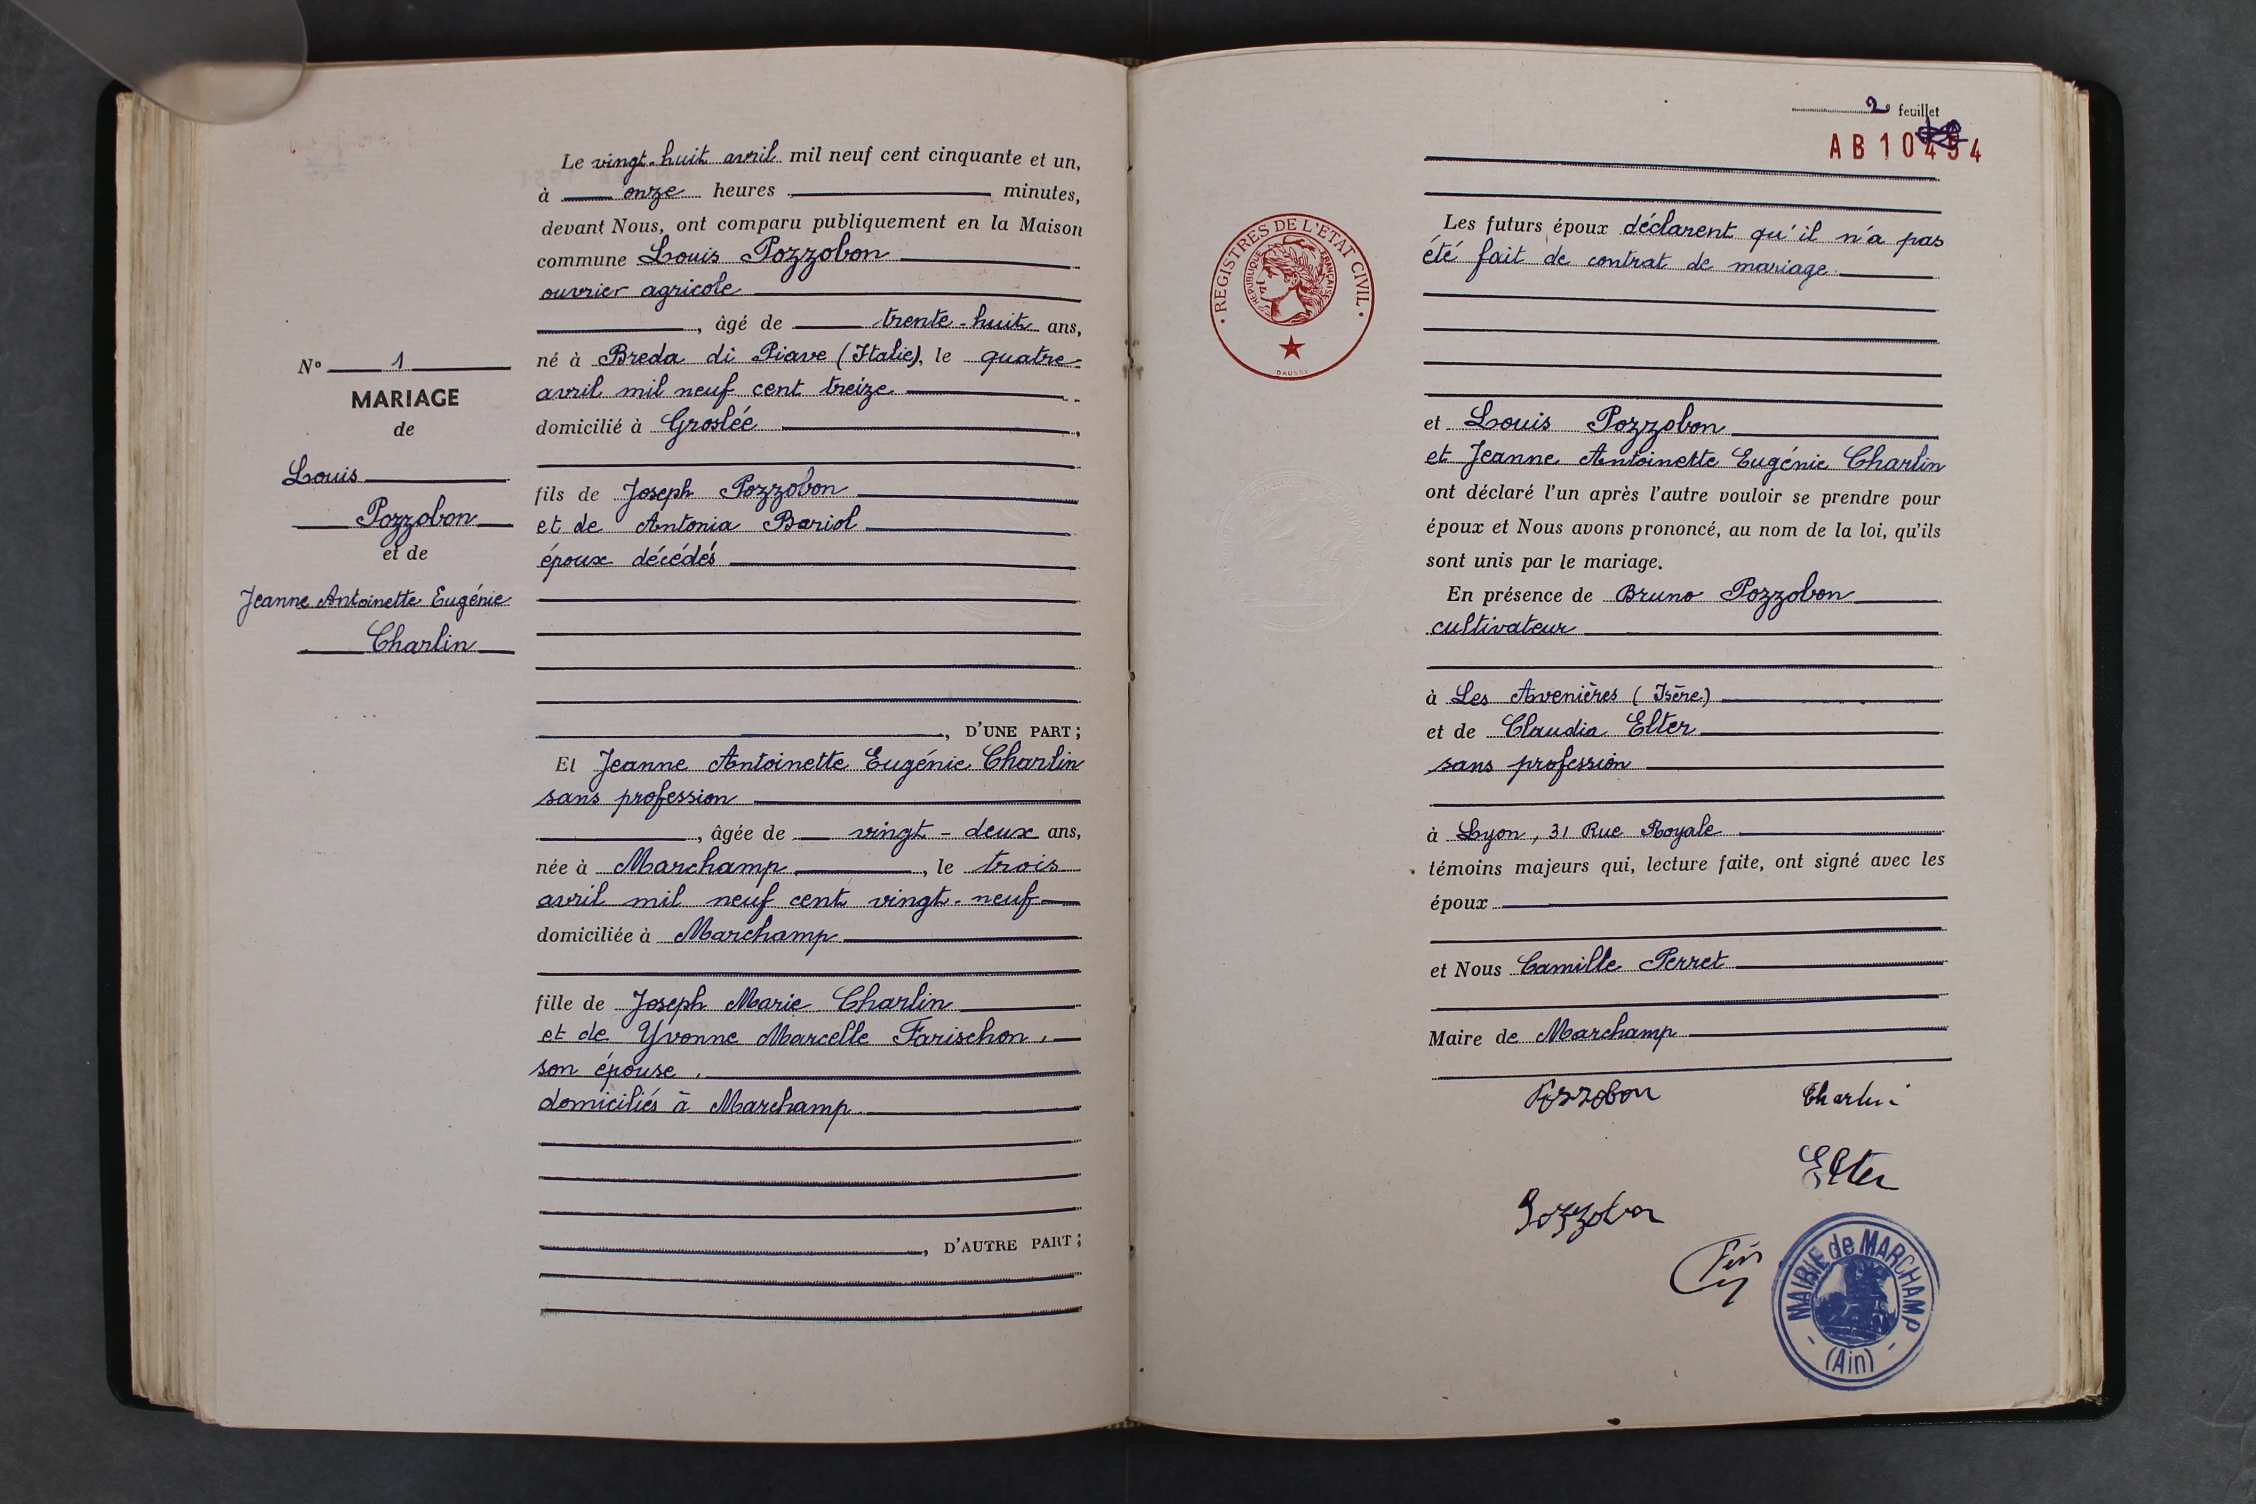 Le vingt-huit avril mil neuf cent cinquante et un,
à onze heures minutes,
devant Nous, ont comparu publiquement en la Maison
commune Louis Pozzobon
ouvrier agricole
, âgé de trente-huit ans,
né à Breda di Piave (Italie), le quatre
avril mil neuf cent treize
domicilié à Groslée ,
fils de Joseph Pozzobon
et de Antonia Bariol
époux décédés
, D'UNE PART ;
Et Jeanne Antoinette Eugénie Charlin
sans profession
, âgée de vingt-deux ans,
née à Marchamp , le trois
avril mil neuf cent vingt-neuf
domiciliée à Marchamp
fille de Joseph Marie Charlin
et de Yvonne Marcelle Farischon,
son épouse,
domiciliés à Marchamp
, D'AUTRE PART ;
N° 1
MARIAGE
de
Louis
Pozzobon
et de
Jeanne Antoinette Eugénie
Charlin
2 feuillet
AB 10454
REGISTRES DE L'ETAT CIVIL
REPUBLIQUE FRANÇAISE
Les futurs époux déclarent qu'il n'a pas
été fait de contrat de mariage.
et Louis Pozzobon
et Jeanne Antoinette Eugénie Charlin
ont déclaré l'un après l'autre vouloir se prendre pour
époux et Nous avons prononcé, au nom de la loi, qu'ils
sont unis par le mariage.
En présence de Bruno Pozzobon
cultivateur
à Les Avenières (Isère)
et de Claudia Elter
sans profession
à Lyon, 31 Rue Royale
témoins majeurs qui, lecture faite, ont signé avec les
époux
et Nous Camille Perret
Maire de Marchamp
Pozzobon Charlin
Elter
Pozzobon
MAIRIE de MARCHAMP
(Ain)